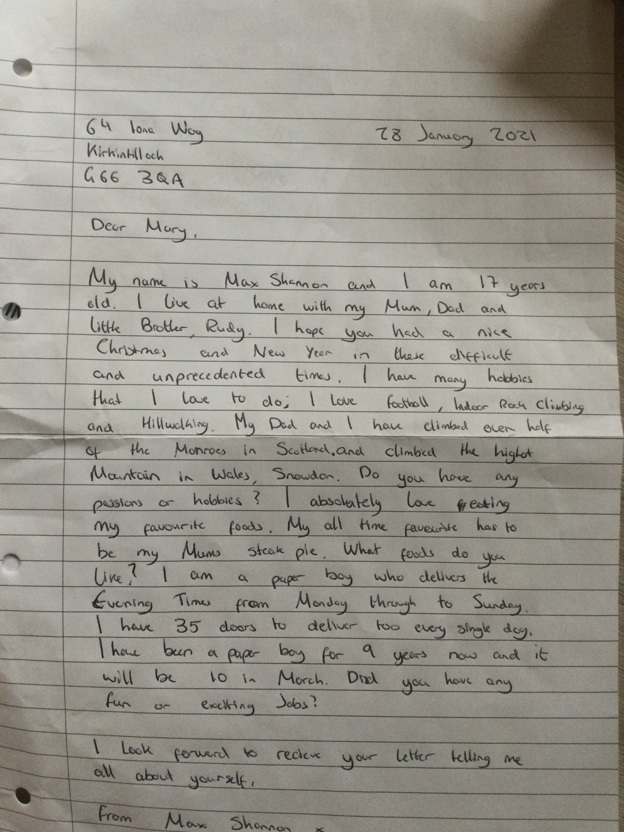 64 Iona Way 28 January 2021
Kirkintilloch
G66 3QA
Dear Mary,
My name is Max Shannon and I am 17 years
old. I live at home with my Mum, Dad and
little Brother, Rudy. I hope you had a nice
Christmas and New Year in these difficult
and unprecedented times. I have many hobbies
that I love to do; I love football, Indoor Rock Climbing
and Hillwalking. My Dad and I have climbed over half
of the Monroes in Scotland, and climbed the highst
Mountain in Wales, Snowdon. Do you have any
passions or hobbies? I absolutely love eating
my favourite foods. My all time favourite has to
be my Mums steak pie. What foods do you
like? I am a paper boy who delivers the
Evening Times from Monday through to Sunday.
I have 35 doors to deliver too every single day.
I have been a paper boy for 9 years now and it
will be 10 in March. Did you have any
fun or exciting Jobs?
I look forward to recieve your letter telling me
all about yourself.
From Max Shannon x